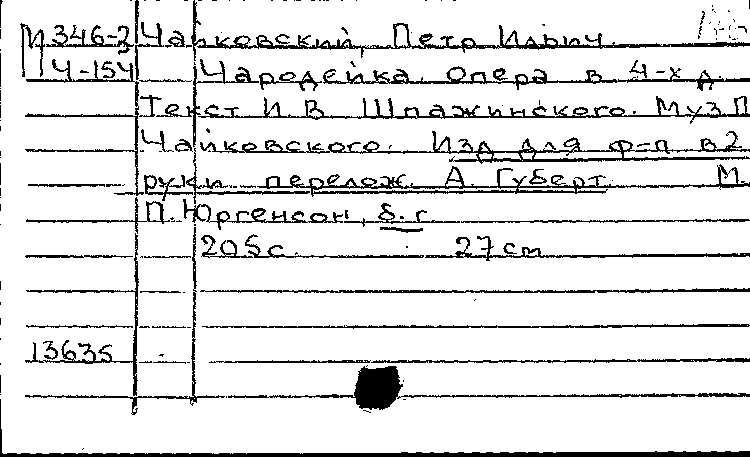 М 346-3 Чайковский, Петр Ильич
Ч-154 Чародейка. Опера в 4-х д.
Текст И. В. Шпажинского. Муз П
Чайковского. Изд для ф-п в 2
руки перелож. А. Губерт. М.
П. Юргенсон, б. г.
205 с. 27 cm
13635